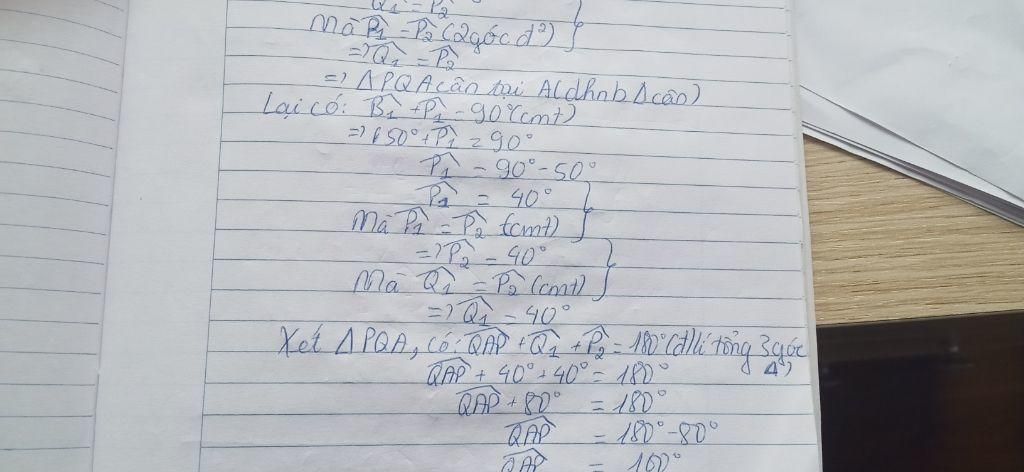 Q̂1 = P̂2
Mà P̂1 = P̂2 (2 góc đ²)
=> Q̂1 = P̂2
=> ΔPQA cân tại A (dhnb Δ cân)
Lại có: B̂1 + P̂1 = 90° (cmt)
=> 50° + P̂1 = 90°
P̂1 = 90° - 50°
P̂1 = 40°
Mà P̂1 = P̂2 (cmt)
=> P̂2 = 40°
Mà Q̂1 = P̂2 (cmt)
=> Q̂1 = 40°
Xét ΔPQA, có: QAP + Q̂1 + P̂2 = 180° (đlí tổng 3 góc
Δ)
QAP + 40° + 40° = 180°
QAP + 80° = 180°
QAP = 180° - 80°
QAP = 100°